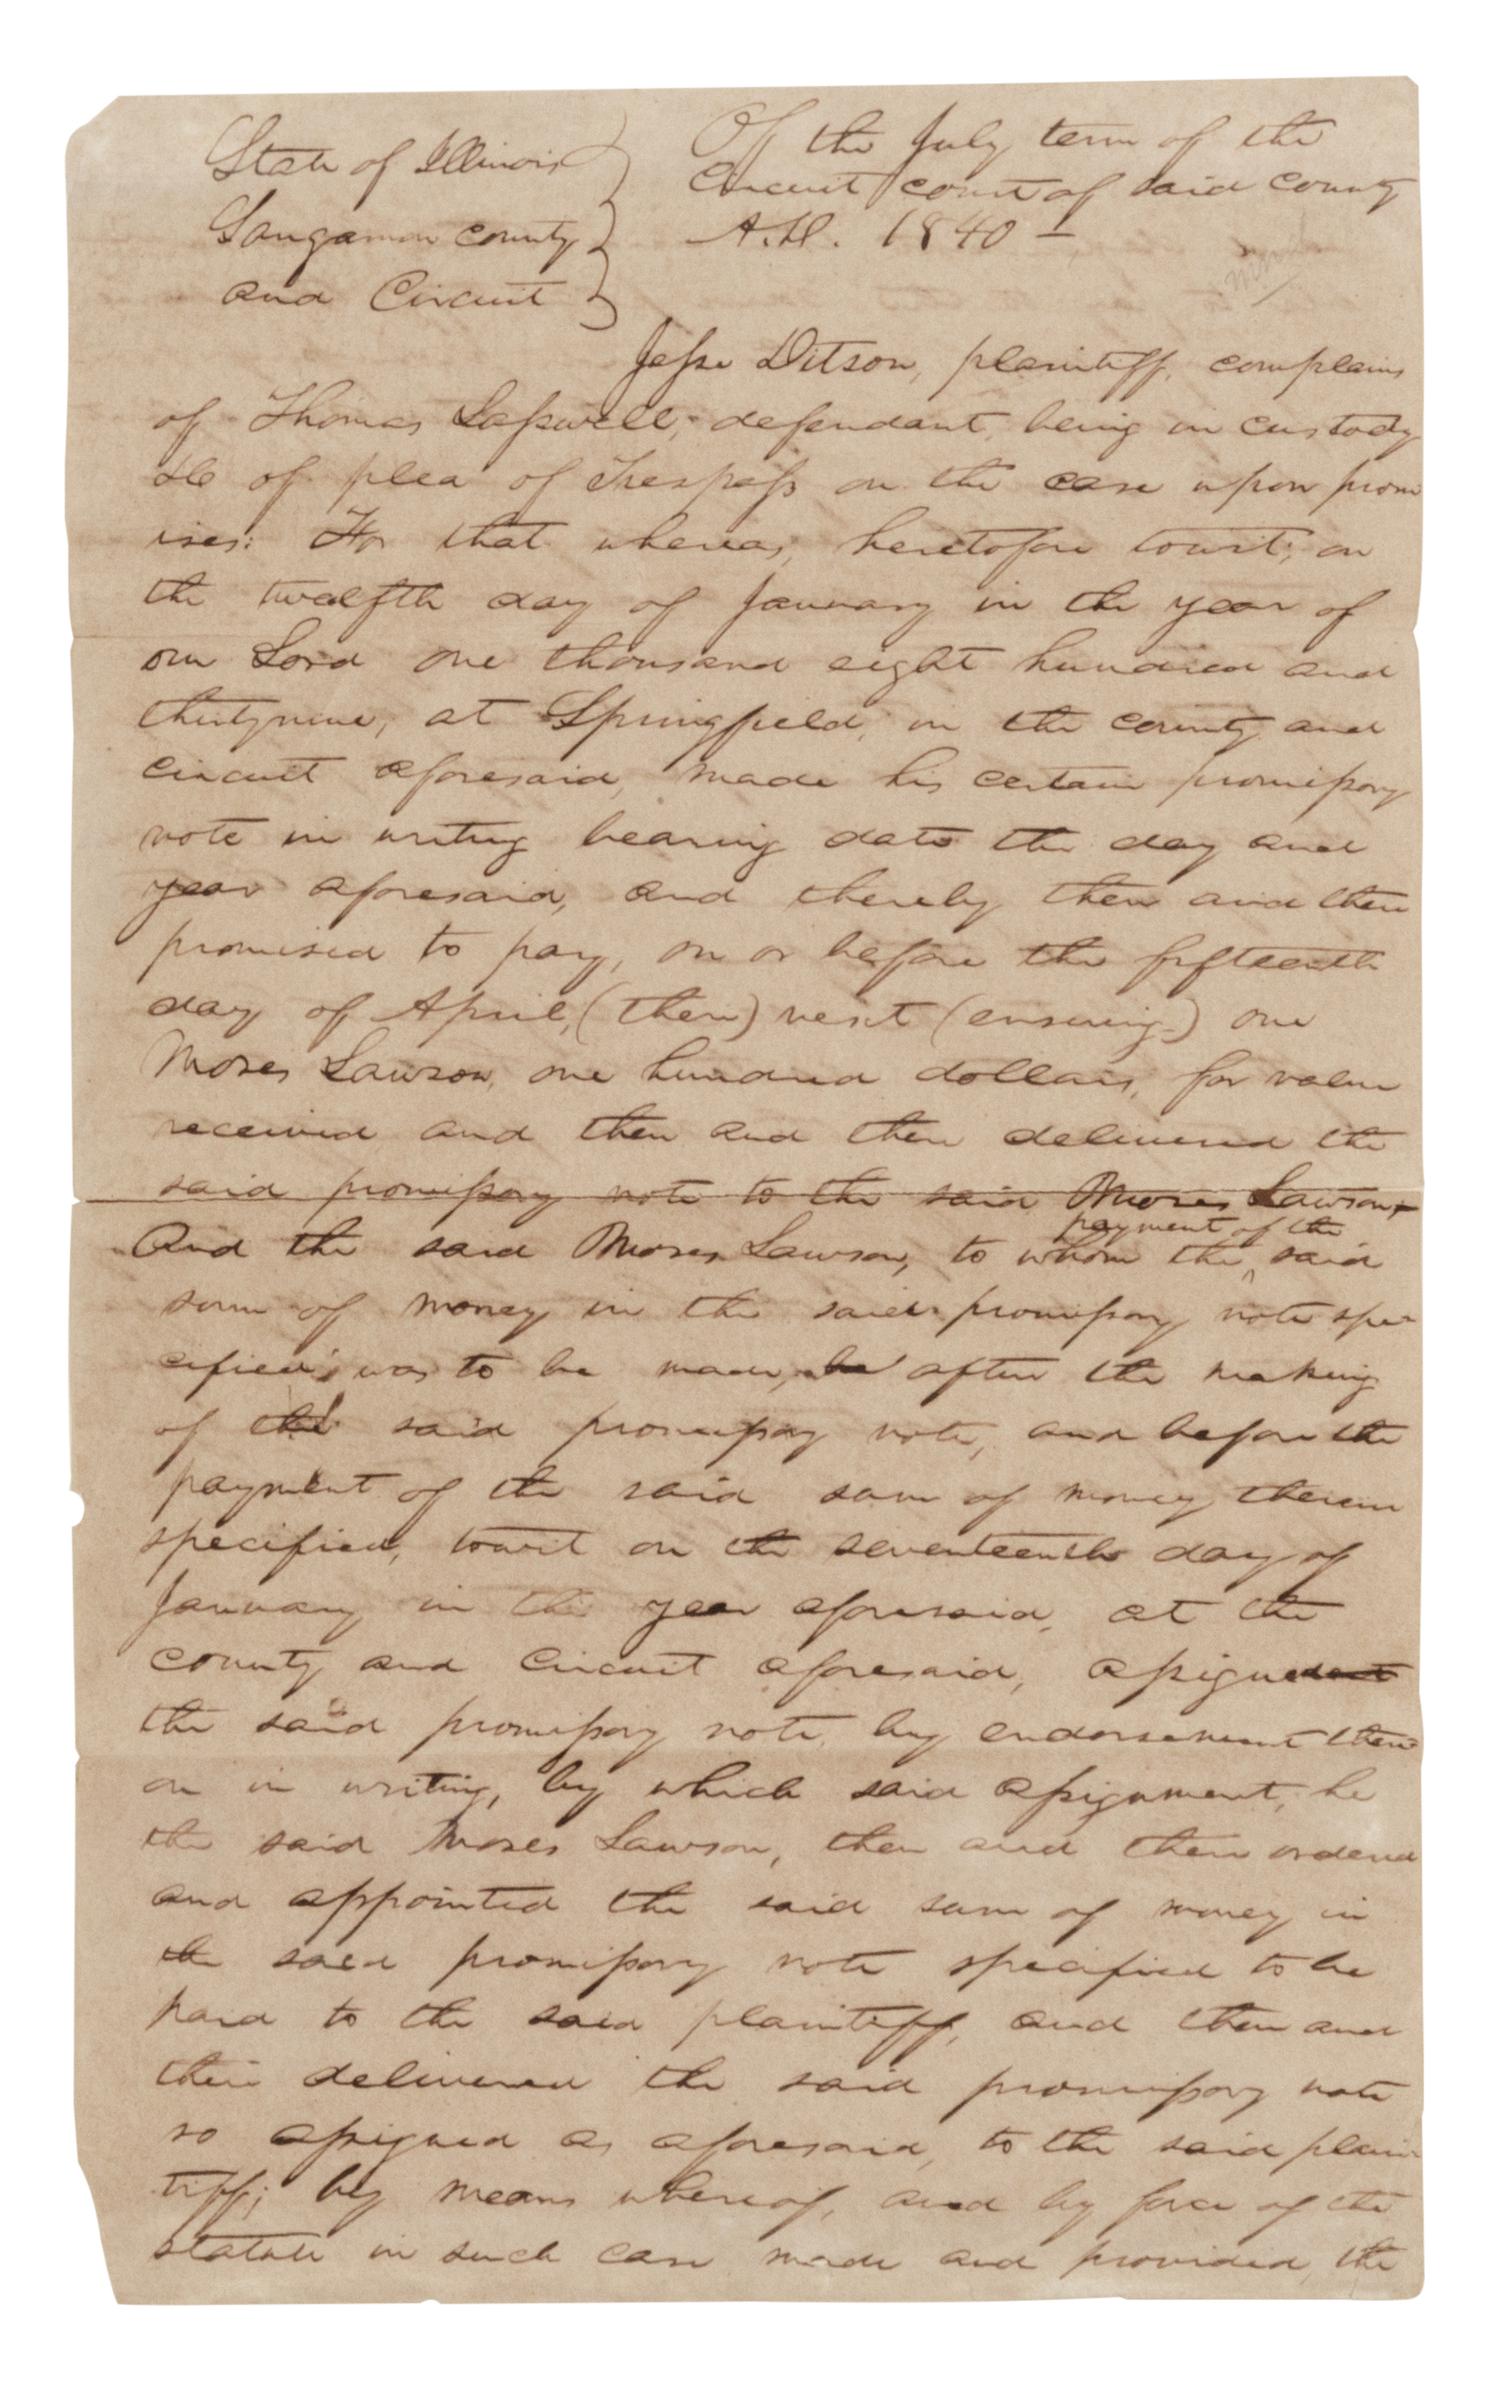 State of Illinois
Sangamon county
and Circuit
Of the July term of the
Circuit court of said county
A.D. 1840 —
Jesse Ditson, plaintiff, complains
of Thomas Lasswell, defendant, being in custody
&c of plea of Trespass on the case upon prom
ises: For that whereas, heretofore towit, on
the twelfth day of January in the year of
our Lord one thousand eight hundred and
thirtynine, at Springfield, in the county and
circuit aforesaid, made his certain promissory
note in writing bearing date the day and
year aforesaid, and thereby then and there
promised to pay, on or before the fifteenth
day of April, (then) next (ensuing) one
Moses Lawson, one hundred dollars, for value
received and then and there delivered the
said promissory note to the said Moses Lawson—
payment of the
And the said Moses Lawson, to whom the said
sum of money in the said promissory note spe-
cified, was to be made, after the making
of the said promissory note, and before the
payment of the said sum of money therein
specified, towit on the seventeenth day of
January in the year aforesaid, at the
county and circuit aforesaid, assigned
the said promissory note, by endorsement there-
on in writing, by which said assignment, he
the said Moses Lawson, then and there ordered
and appointed the said sum of money in
the said promissory note specified to be
paid to the said plaintiff, and then and
there delivered the said promissory note
so assigned as aforesaid, to the said plain-
tiff; by means whereof, and by force of the
statute in such case made and provided, the